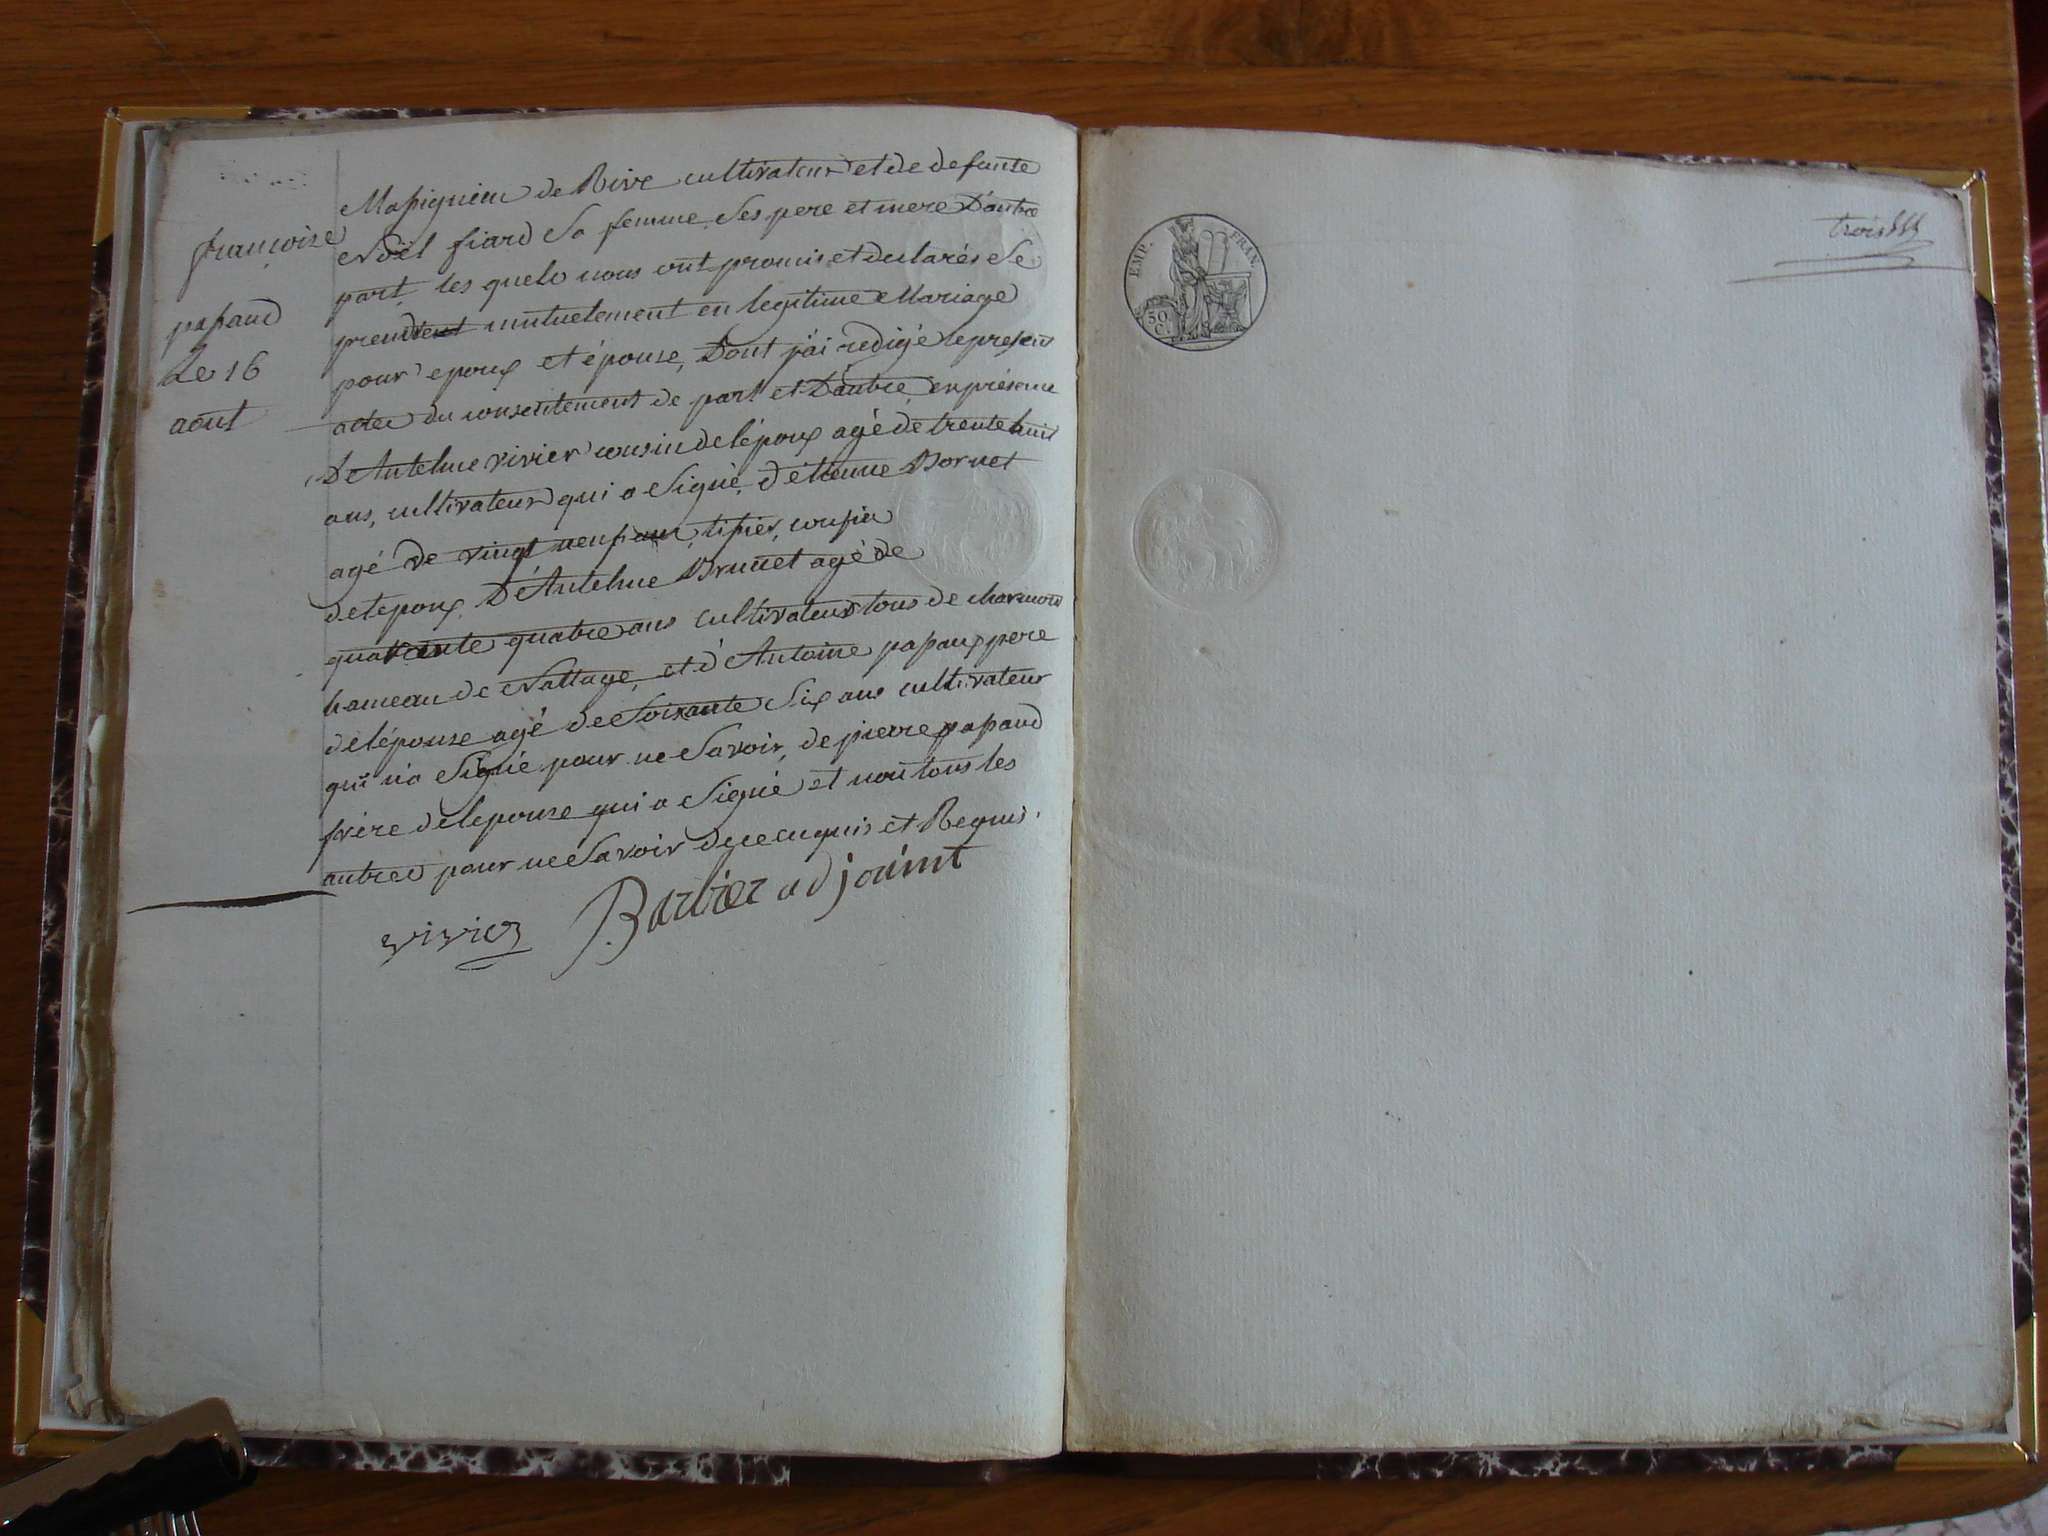 françoise
papaud
Le 16
aout
Massignieu de Rive cultivateur et de defunte
Noël fiard Sa femme, Ses pere et mere D'autre
part, les quels nous ont promis et declarés Se
prendre mutuelement en legitime Mariage
pour epoux et épouse, Dont j'ai redigé le present
acte du consentement de part et D'autre, en présence
D'Antelme vivier cousin de l'époux agé de trente huit
ans, cultivateur qui a Signé, d'étienne Bornet
agé de vingt neuf ans, tissier, cousin
de l'epoux, D'Antelme Brunet agé de
quarante quatre ans cultivateur tous de charmont
hameau de Nattage, et d'Antoine papaux pere
de l'épouse agé de Soixante Six ans cultivateur
qui n'a Signé pour ne Savoir, de pierre papaud
frère de lepouse qui a Signé et non tous les
autres pour ne Savoir de ce enquis et Requis.
vivier Barbier adjoimt
EMP. FRAN.
50 C.
trois